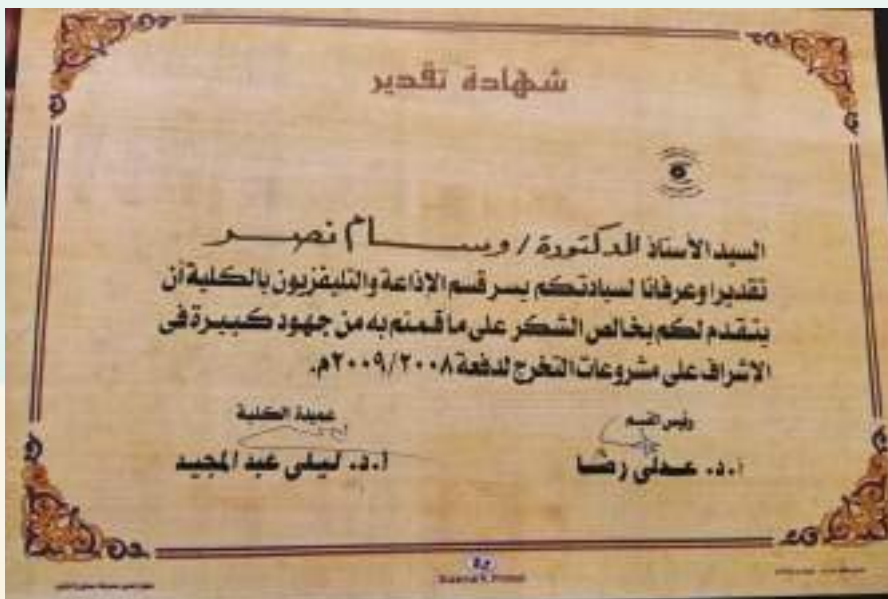 شهادة تقدير
السيد الأستاذ الدكتورة / وســـام نصـــر
تقديرا وعرفانا لسيادتكم يسر قسم الإذاعة والتليفزيون بالكلية أن
يتقدم لكم بخالص الشكر على ما قمتم به من جهود كبيرة فى
الاشراف على مشروعات التخرج لدفعة ٢٠٠٨/٢٠٠٩م.
رئيس القسم
عميدة الكلية
أ.د. عـدلى رضـا
أ.د. ليلى عبد المجيد